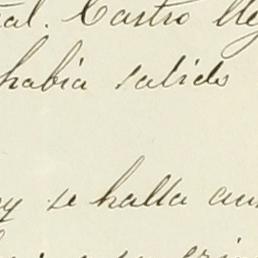 al. Castro lle
habia salido
y se halla aus